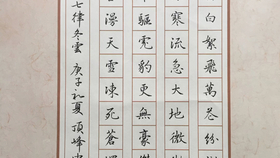 白絮飛萬花紛
寒流急大地微
驅虎豹更無豪
漫天雪凍死蒼
七律冬雲 庚子初夏 頂峰